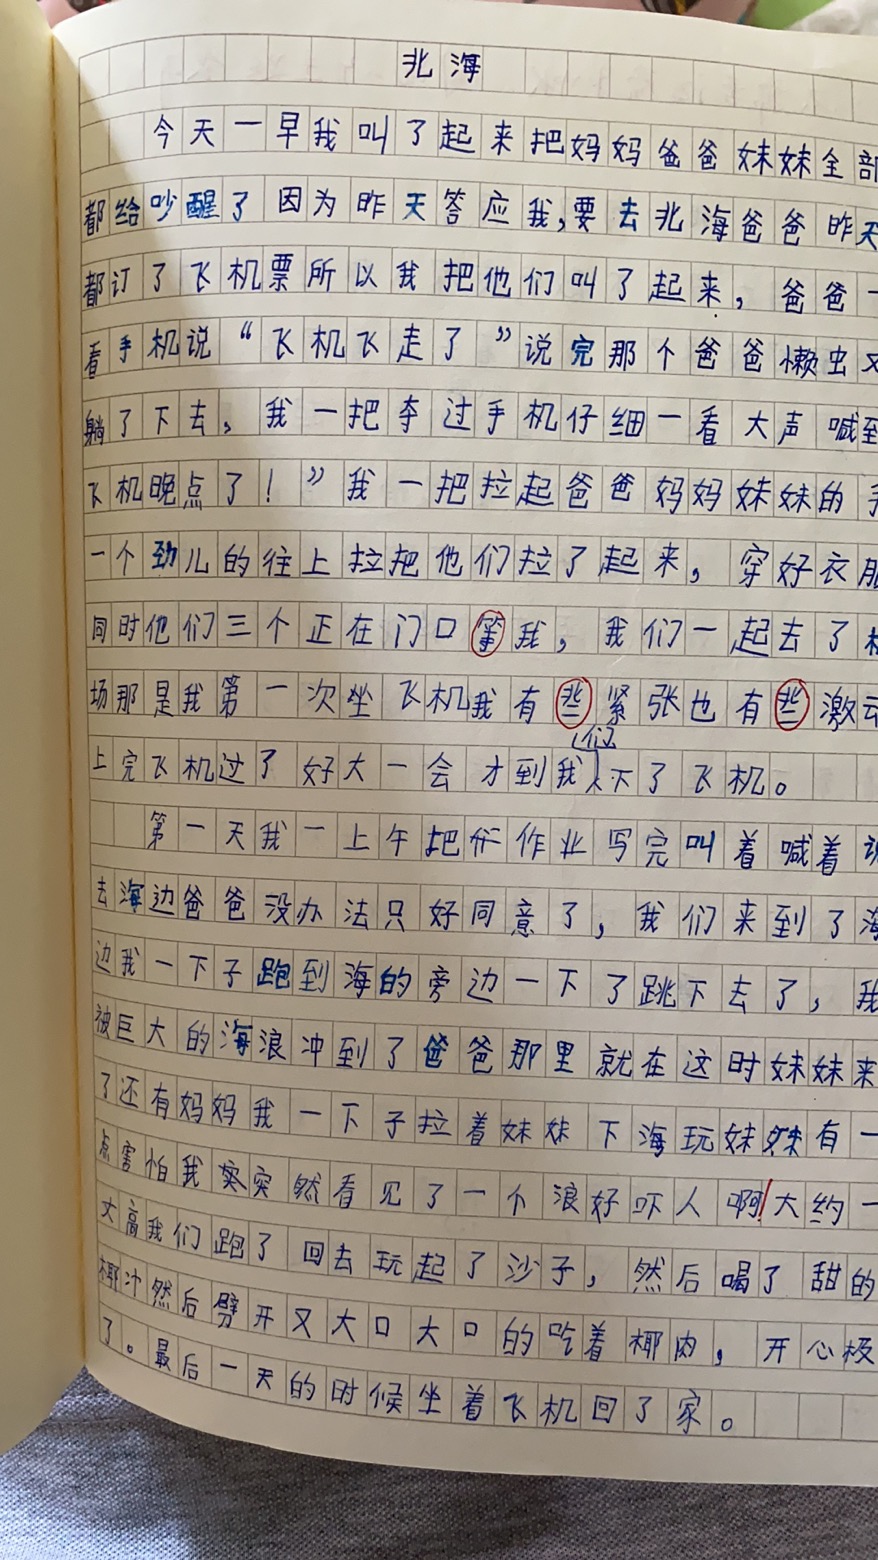 北海
今天一早我叫了起来把妈妈爸爸妹妹全部
都给吵醒了因为昨天答应我,要去北海爸爸昨天
都订了飞机票所以我把他们叫了起来，爸爸一
看手机说“飞机飞走了”说完那个爸爸懒虫又
躺了下去，我一把夺过手机仔细一看大声喊到
飞机晚点了！”我一把拉起爸爸妈妈妹妹的手
一个劲儿的往上拉把他们拉了起来，穿好衣服
同时他们三个正在门口等我，我们一起去了机
场那是我第一次坐飞机我有些紧张也有些激动
上完飞机过了好大一会才到我们下了飞机。
第一天我一上午把作业写完叫着喊着说
去海边爸爸没办法只好同意了，我们来到了海
边我一下子跑到海的旁边一下了跳下去了，我
被巨大的海浪冲到了爸爸那里就在这时妹妹来
了还有妈妈我一下子拉着妹妹下海玩妹妹有一
点害怕我突然看见了一个浪好吓人啊！大约一
丈高我们跑了回去玩起了沙子，然后喝了甜的
椰汁然后劈开又大口大口的吃着椰肉，开心极
了。最后一天的时候坐着飞机回了家。